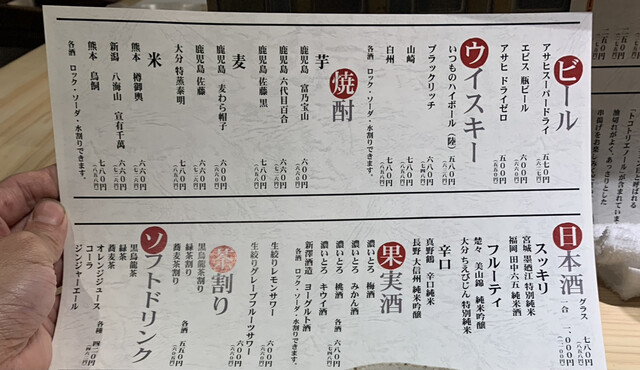 ビール
アサヒスーパードライ 五七〇円
エビス 瓶ビール 六〇〇円
アサヒ ドライゼロ 五〇〇円
ウイスキー
いつものハイボール(陸) 五八〇円
ブラックリッチ 六八〇円
山崎 七八〇円
白州 七八〇円
各酒 ロック・ソーダ・水割りできます。
焼酎
芋
鹿児島 富乃宝山 七八〇円
鹿児島 六代目百合 六〇〇円
鹿児島 佐藤 黒 七八〇円
麦
鹿児島 麦わら帽子 六〇〇円
鹿児島 佐藤 六六〇円
大分 特蒸泰明 七八〇円
米
熊本 樽御輿 六六〇円
新潟 八海山 宜有千萬 六六〇円
熊本 鳥飼 七八〇円
各酒 ロック・ソーダ・水割りできます。
日本酒
グラス 七八〇円
一合 一、〇〇〇円
スッキリ
宮城 墨廼江 特別純米
福岡 田中六五 純米酒
フルーティ
楚々 美山錦 純米吟醸
大分 ちえびじん 特別純米
辛口
真野鶴 辛口純米
長野 大信州 純米吟醸
果実酒
濃いとろ 梅酒
濃いとろ みかん酒
濃いとろ 桃酒
濃いとろ キウイ酒
新澤酒造 ヨーグルト酒
各酒 六八〇円
各酒 ロック・ソーダ・水割りできます。
生絞りレモンサワー 六〇〇円
生絞りグレープフルーツサワー 六〇〇円
茶割り
黒烏龍茶割り
緑茶割り
蕎麦茶割り
各酒 五五〇円
ソフトドリンク
黒烏龍茶
緑茶
蕎麦茶
オレンジジュース
コーラ
ジンジャーエール
各種 四二〇円